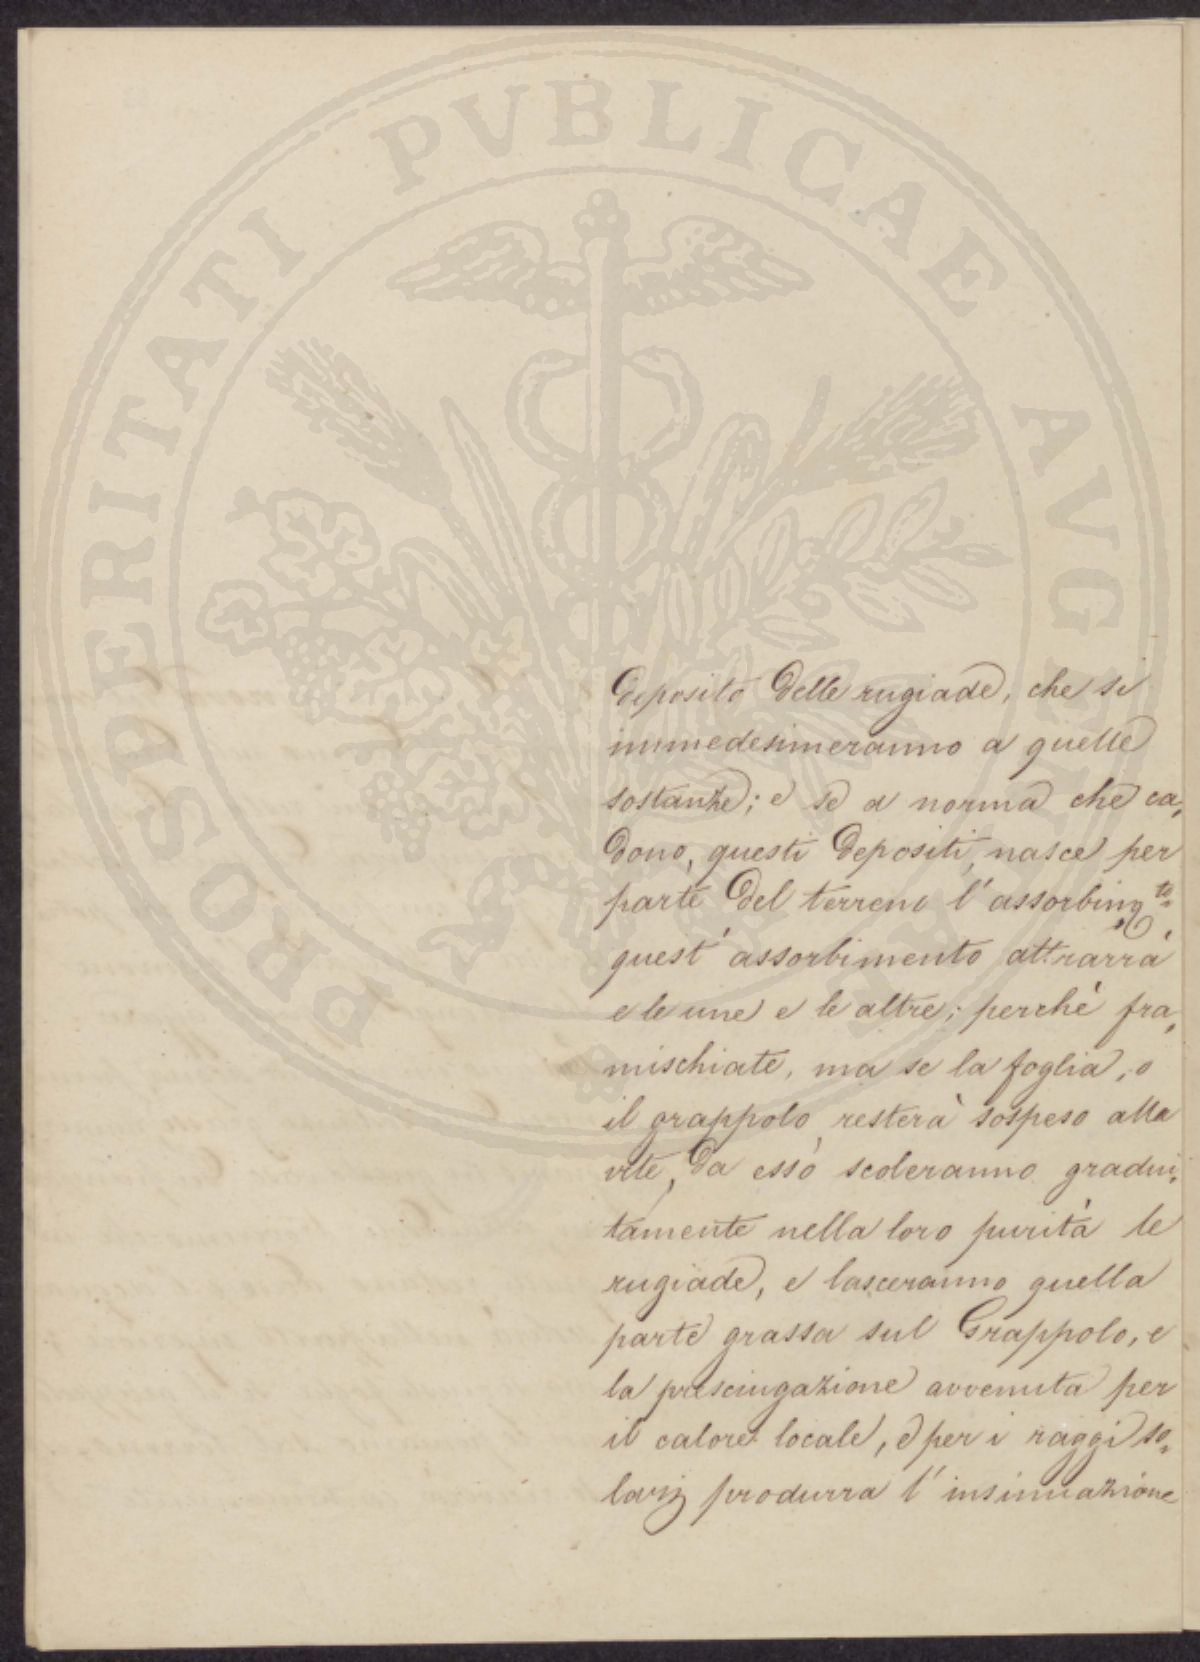 PROSPERITATI PVBLICAE AVGENDAE
deposito delle rugiade, che si
immedesimeranno a quelle
sostanze; e se a norma che ca,
dono, questi depositi, nasce per
parte del terreno l'assorbim.to
quest'assorbimento attrarrà
e le une e le altre; perchè fra,
mischiate, ma se la foglia, o
il grappolo, resterà sospeso alla
vite, da esso scoleranno gradui,
tamente nella loro purità le
rugiade, e lasceranno quella
parte grassa sul Grappolo, e
la prosciugazione avvenuta per
il calore locale, e per i raggi so,
larij produrra l'insinuazione